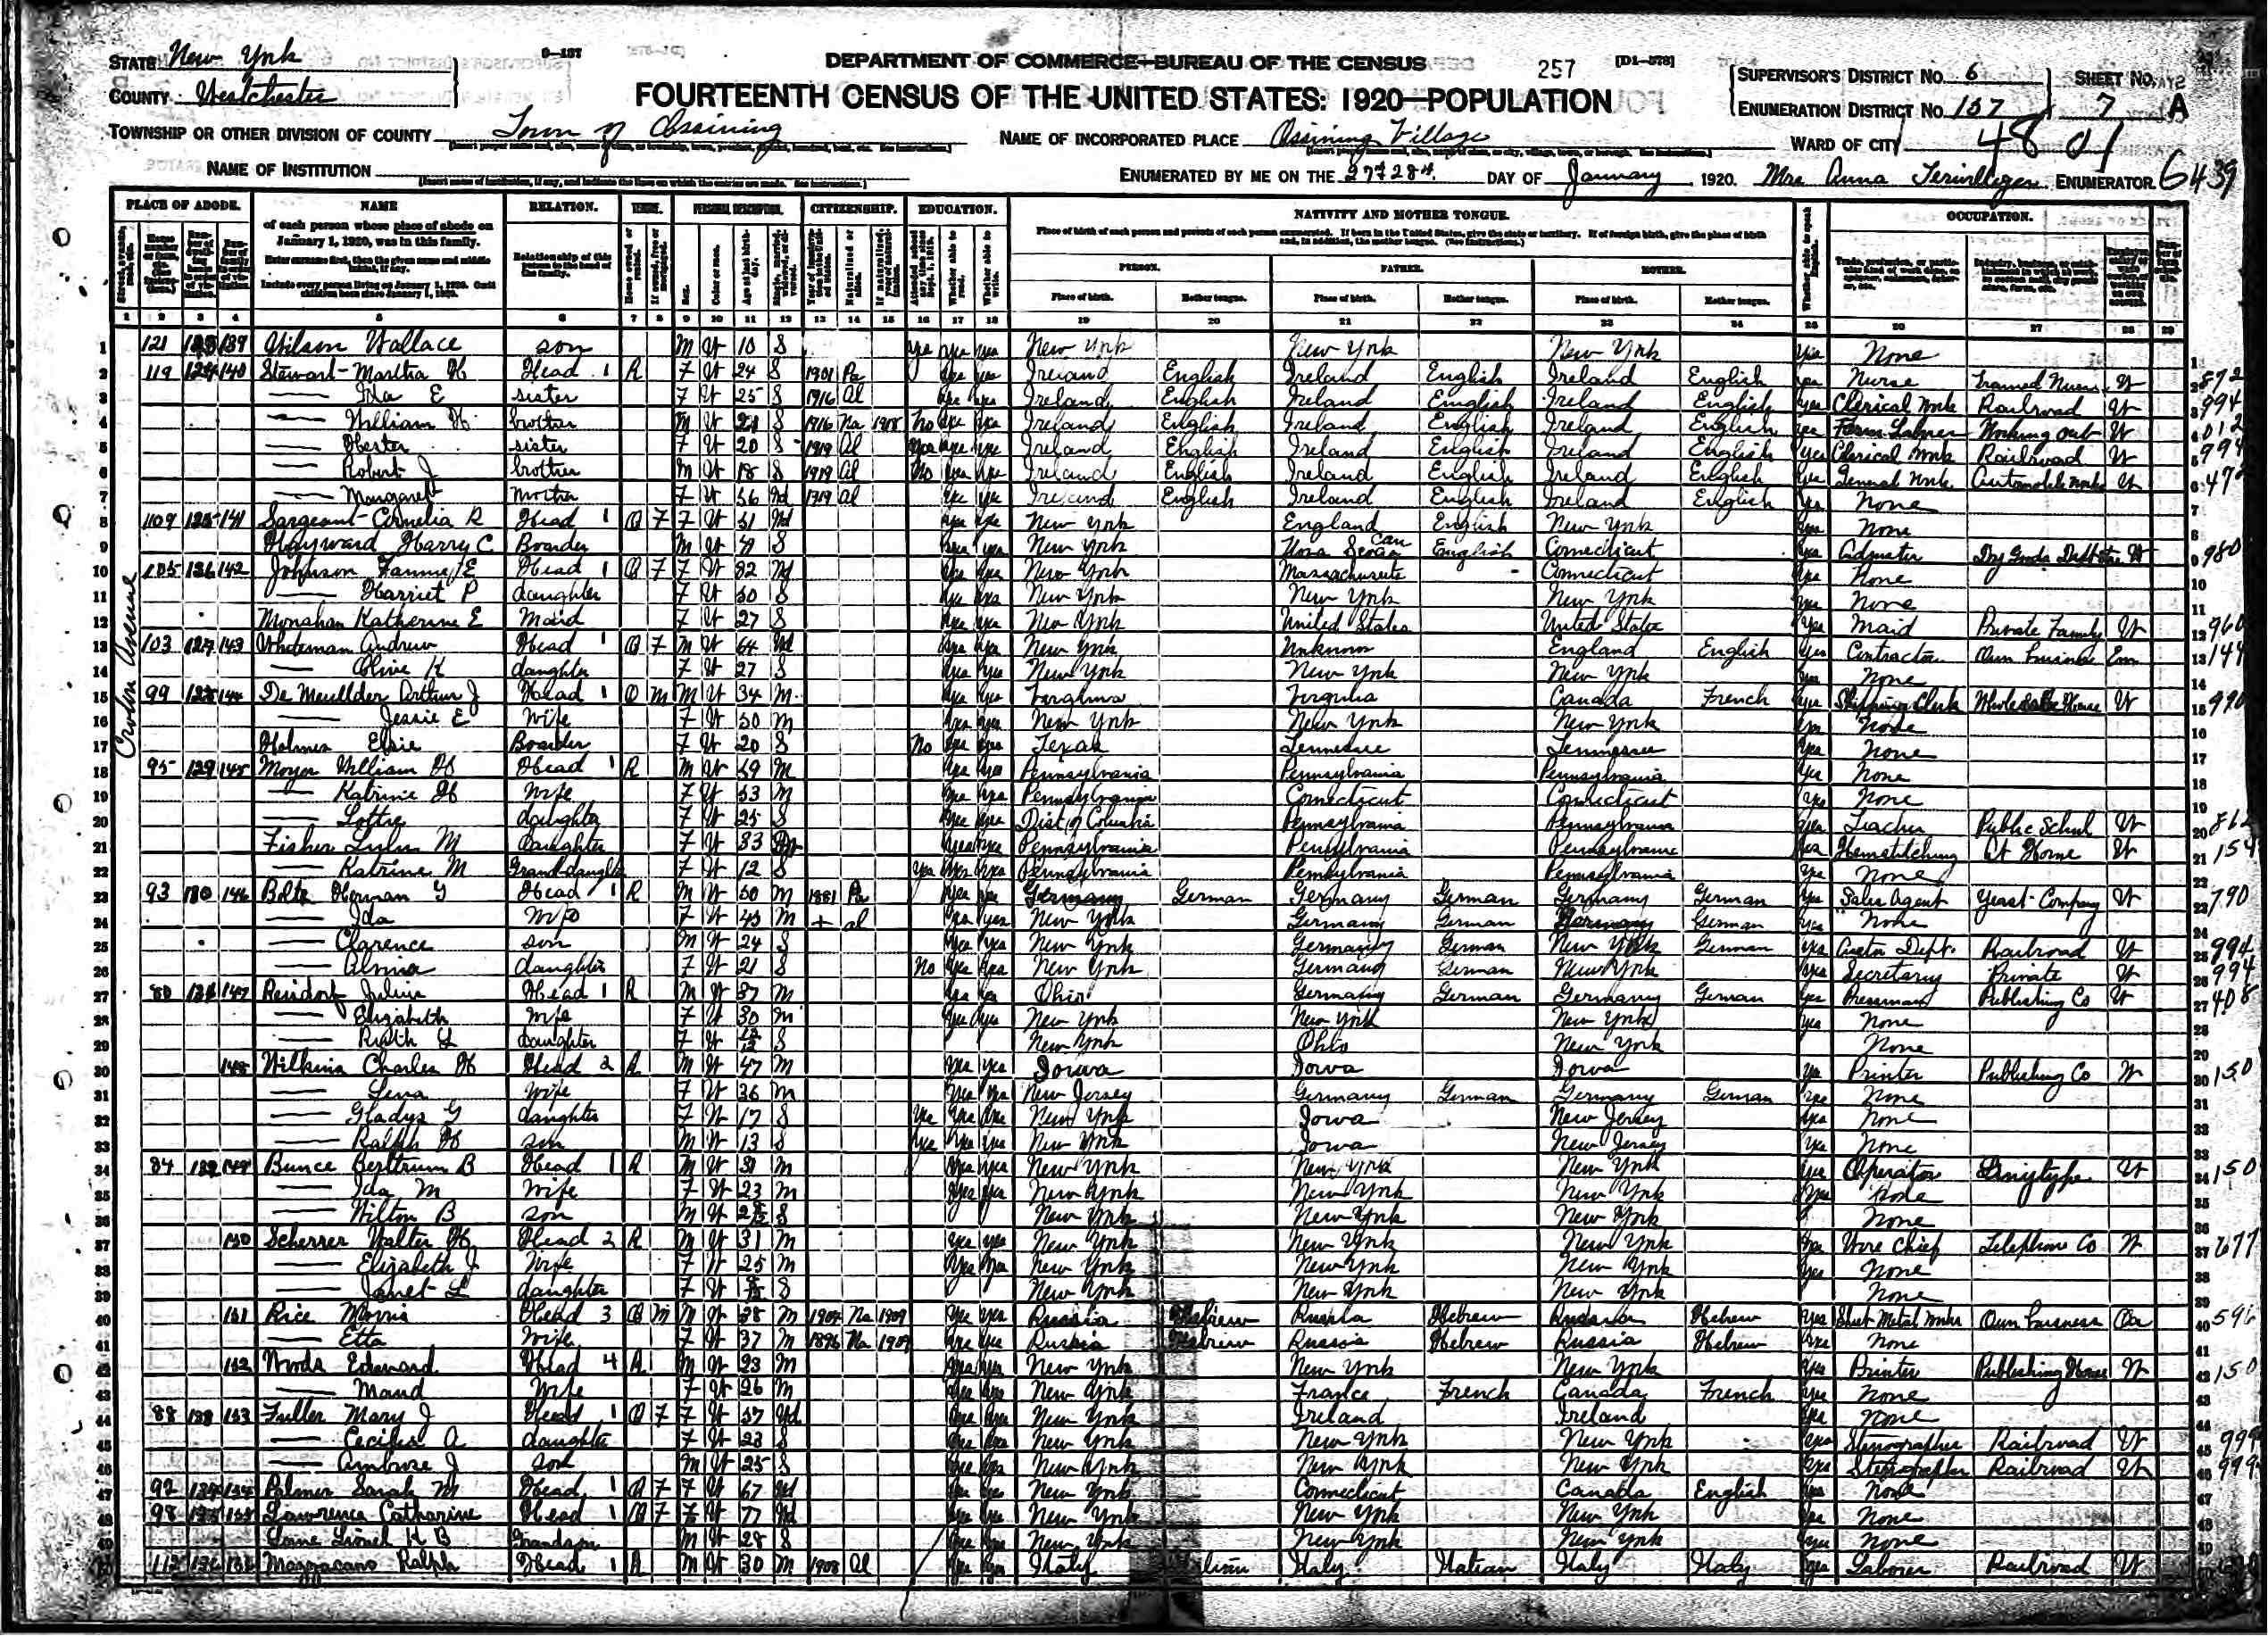 STATE New York
COUNTY Westchester
DEPARTMENT OF COMMERCE—BUREAU OF THE CENSUS
257
[D1-578]
FOURTEENTH CENSUS OF THE UNITED STATES: 1920—POPULATION
SUPERVISOR'S DISTRICT NO. 6
SHEET NO.
ENUMERATION DISTRICT NO. 157
7 A
TOWNSHIP OR OTHER DIVISION OF COUNTY Town of Ossining
NAME OF INCORPORATED PLACE Ossining Village
WARD OF CITY
4801
NAME OF INSTITUTION
ENUMERATED BY ME ON THE 27 & 28 DAY OF January, 1920. Mrs Anna ENUMERATOR.
6439
PLACE OF ABODE. NAME RELATION. TENURE. PERSONAL DESCRIPTION. CITIZENSHIP. EDUCATION. NATIVITY AND MOTHER TONGUE. OCCUPATION.
of each person whose place of abode on January 1, 1920, was in this family.
Enter surname first, then the given name and middle initial, if any.
Include every person living on January 1, 1920. Omit children born since January 1, 1920.
Relationship of this person to the head of the family.
PERSON. FATHER. MOTHER.
Place of birth. Mother tongue. Place of birth. Mother tongue. Place of birth. Mother tongue.
1 2 3 4 5 6 7 8 9 10 11 12 13 14 15 16 17 18 19 20 21 22 23 24 25 26 27 28 29
Croton Avenue
1 121 139 Wilson Wallace son M W 10 S yes yes yes New York New York New York yes None
2 119 124 140 Stewart Martha H Head 1 R F W 24 S 1901 Pa yes yes Ireland English Ireland English Ireland English yes Nurse Trained Nurse W
3 Ida E sister F W 25 S 1916 Al yes yes Ireland English Ireland English Ireland English yes Clerical Work Railroad W
4 William H brother M W 21 S 1916 Na 1918 No yes yes Ireland English Ireland English Ireland English yes Farm Laborer Working Out W
5 Hester sister F W 20 S 1919 Al yes yes yes Ireland English Ireland English Ireland English yes Clerical Work Railroad W
6 Robert J brother M W 18 S 1919 Al No yes yes Ireland English Ireland English Ireland English yes General Work Automobile Works W
7 Margaret Mother F W 56 Wd 1919 Al yes yes Ireland English Ireland English Ireland English yes None
8 109 125 141 Sargeant Cornelia R Head 1 O F F W 51 Wd yes yes New York England English New York yes None
9 Hayward Harry C Boarder M W 49 S yes yes New York Nova Scotia Can English Connecticut yes Adjuster Dry Goods W
10 105 126 142 Johnson Fannie E Head 1 O F F W 82 Wd yes yes New York Massachusetts Connecticut yes None
11 Harriet P daughter F W 50 S yes yes New York New York New York yes None
12 Monahan Katherine E Maid F W 27 S yes yes New York United States United States yes Maid Private Family W
13 103 127 143 Whiteman Andrew Head 1 O F M W 64 Wd yes yes New York Unknown England English yes Contractor Own business Em
14 Olive K daughter F W 27 S yes yes New York New York New York yes None
15 99 128 144 De Meullder Arthur J Head 1 O M M W 34 M yes yes Virginia Virginia Canada French yes Shipping Clerk Wholesale House W
16 Jessie E Wife F W 30 M yes yes New York New York New York yes None
17 Holmes Elsie Boarder F W 20 S No yes yes Texas Tennessee Tennessee yes None
18 95 129 145 Moyer William H Head 1 R M W 59 M yes yes Pennsylvania Pennsylvania Pennsylvania yes None
19 Katrine H Wife F W 53 M yes yes Pennsylvania Connecticut Connecticut yes None
20 Lottie daughter F W 25 S yes yes Dist of Columbia Pennsylvania Pennsylvania yes Teacher Public School W
21 Fisher Lulu M daughter F W 33 yes yes Pennsylvania Pennsylvania Pennsylvania yes Hemstitching At Home W
22 Katrine M Granddaughter F W 12 S yes yes yes Pennsylvania Pennsylvania Pennsylvania yes None
23 93 130 146 Bolte Herman G Head 1 R M W 50 M 1881 Pa yes yes Germany German Germany German Germany German yes Sales Agent Yeast Company W
24 Ida Wife F W 45 M + al yes yes New York Germany German Germany German yes None
25 Clarence son M W 24 S yes yes New York Germany German New York German yes Railroad W
26 Almia daughter F W 21 S No yes yes New York Germany German New York yes Secretary Private W
27 80 131 147 Reisdorf Julius Head 1 R M W 37 M yes yes Ohio Germany German Germany German yes Pressman Publishing Co W
28 Elizabeth Wife F W 30 M yes yes New York New York New York yes None
29 Ruth daughter F W S New York Ohio New York None
30 148 Wilkins Charles H Head 2 R M W 47 M yes yes Iowa Iowa Iowa yes Printer Publishing Co W
31 Lena Wife F W 36 M yes yes New Jersey Germany German Germany German yes None
32 Gladys G daughter F W 17 S yes yes yes New York Iowa New Jersey yes None
33 Ralph H son M W 13 S yes yes yes New York Iowa New Jersey yes None
34 84 132 149 Bunce Bertrum B Head 1 R M W 31 M yes yes New York New York New York yes Operator Linotype W
35 Ida M Wife F W 23 M yes yes New York New York New York yes None
36 Wilton B son M W S New York New York New York None
37 150 Scherrer Walter H Head 2 R M W 31 M yes yes New York New York New York yes Wire Chief Telephone Co W
38 Elizabeth J Wife F W 25 M yes yes New York New York New York yes None
39 Janet L daughter F W S New York New York New York None
40 151 Rice Morris Head 3 O M M W 38 M 1904 Na 1909 yes yes Russia Hebrew Russia Hebrew Russia Hebrew yes Sheet Metal Worker Own business Oa
41 Etta Wife F W 37 M 1896 Na 1909 yes yes Russia Hebrew Russia Hebrew Russia Hebrew yes None
42 152 Woods Edward Head 4 R M W 23 M yes yes New York New York New York yes Printer Publishing House W
43 Maud Wife F W 26 M yes yes New York France French Canada French yes None
44 88 133 153 Fuller Mary J Head 1 O F F W 57 Wd yes yes New York Ireland Ireland yes None
45 Cecilia A daughter F W 23 S yes yes New York New York New York yes Stenographer Railroad W
46 Ambrose J son M W 25 S yes yes New York New York New York yes Stenographer Railroad W
47 92 134 154 Palmer Sarah M Head 1 O F F W 67 Wd yes yes New York Connecticut Canada English yes None
48 98 135 155 Lawrence Catharine Head 1 O F F W 77 Wd yes yes New York New York New York yes None
49 Lane Lionel K B Grandson M W 28 S yes yes New York New York New York yes None
50 112 136 156 Mazzacano Ralph Head 1 R M W 30 M 1908 Al yes yes Italy Italian Italy Italian Italy Italy yes Laborer Railroad W